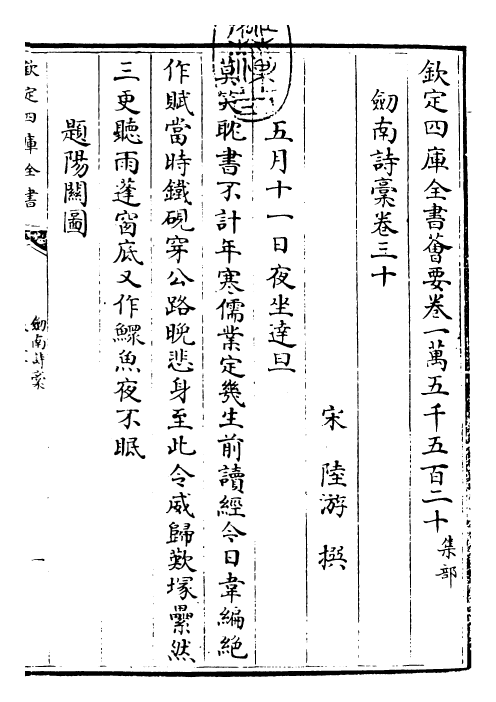 欽定四庫全書薈要卷一萬五千五百二十 集部
劒南詩稾卷三十
宋 陸游 撰
五月十一日夜坐達旦
莫笑耽書不計年寒儒業定幾生前讀經今日韋編絶
作賦當時鐵硯穿公路晚悲身至此令威歸歎塚纍然
三更聽雨蓬窗底又作鰥魚夜不眠
題陽關圖
欽定四庫全書
劒南詩稾
一